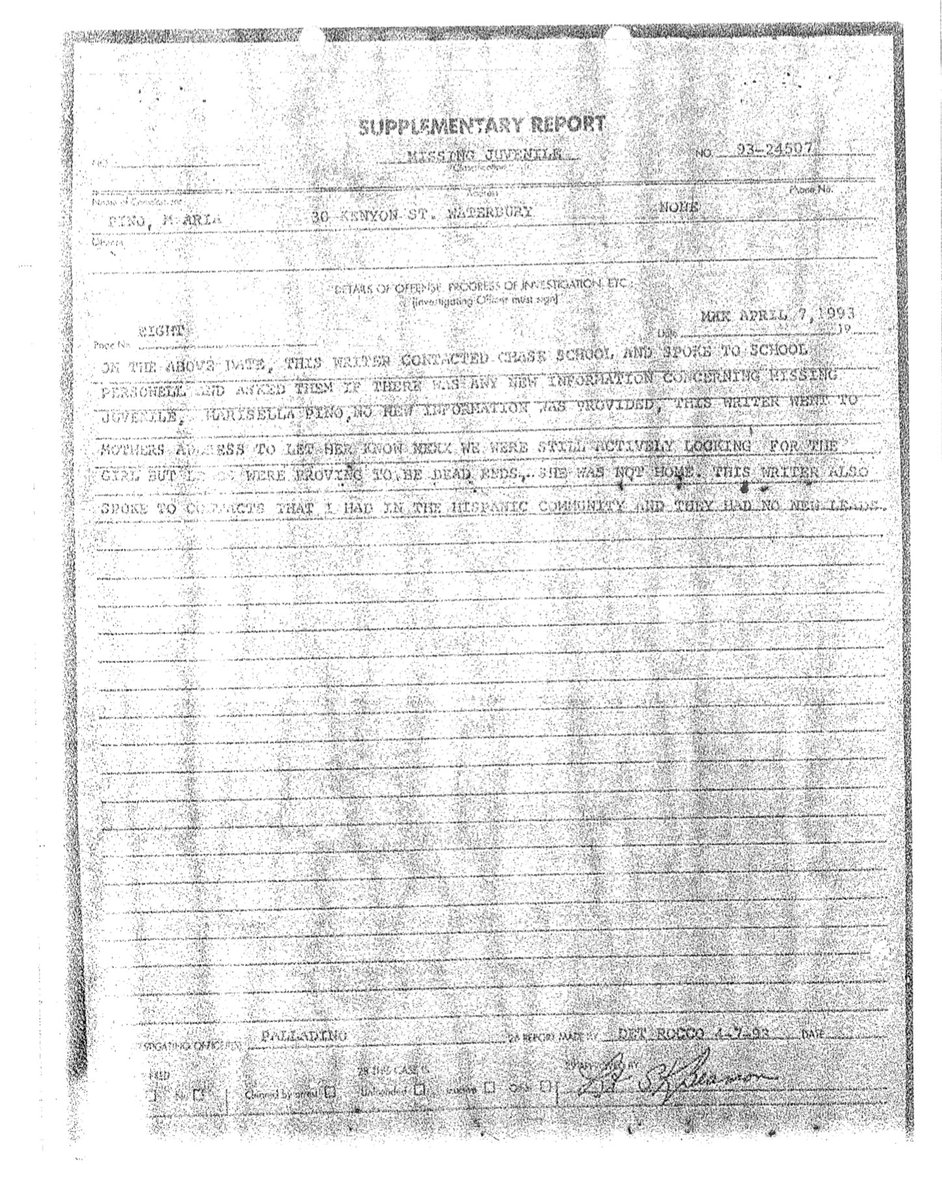 SUPPLEMENTARY REPORT
NO. MISSING JUVENILE NO. 93-24507
Classification
Name of Complainant Address Phone No.
PINO, MARIA 30 KENYON ST. WATERBURY NONE
Offense
DETAILS OF OFFENSE, PROGRESS OF INVESTIGATION, ETC.
(Investigating Officer must sign)
Page No. EIGHT Date APRIL 7,1993 19
ON THE ABOVE DATE, THIS WRITER CONTACTED CHASE SCHOOL AND SPOKE TO SCHOOL
PERSONELL AND ASKED THEM IF THERE WAS ANY NEW INFORMATION CONCERNING MISSING
JUVENILE, MARISELLA PINO,NO NEW INFORMATION WAS PROVIDED, THIS WRITER WENT TO
MOTHERS ADDRESS TO LET HER KNOW WE WERE STILL ACTIVELY LOOKING FOR THE
GIRL BUT WERE PROVING TO BE DEAD ENDS,. SHE WAS NOT HOME. THIS WRITER ALSO
SPOKE TO CONTACTS THAT I HAD IN THE HISPANIC COMMUNITY AND THEY HAD NO NEW LEADS.
STIGATING OFFICER(S) PALLADINO REPORT MADE BY DET ROCCO 4-7-93 DATE
THIS CASE IS APPROVED BY
No Cleared by arrest Unfounded Inactive Open Lt